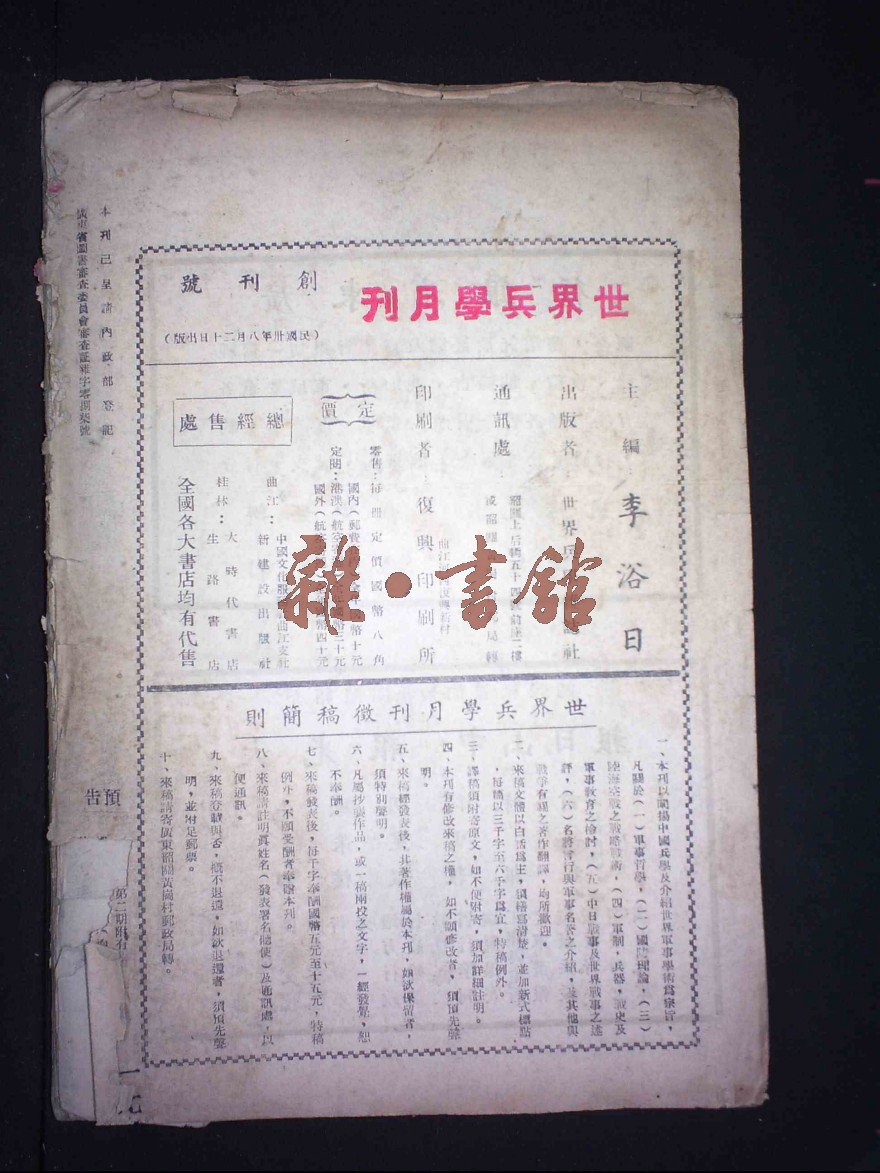 世界兵學月刊
創刊號
(民國卅年八月二十日出版)
主編：李浴日
出版者：世界兵
社
通訊處：
韶關上后街五十四號前座二樓
局轉
印刷者：復興印刷所
定價
零售：每冊定價國幣八角
定閱：
國內(郵費
幣十元
港澳(航
國幣三十元
國外(航
幣四十元
總經售處
曲江：
中國文化服
曲江支社
新建設出版社
桂林：
大時代書店
生路書店
全國各大書店均有代售
雜·書館
世界兵學月刊徵稿簡則
一、本刊以闡揚中國兵學及介紹世界軍事學術為宗旨，
凡關於(一)軍事哲學，(二)國防理論，(三)
陸海空戰之戰略戰術，(四)軍制，兵器，戰史及
軍事教育之檢討，(五)中日戰事及世界戰事之述
評，(六)名將言行與軍事名著之介紹，及其他與
戰爭有關之著作翻譯，均所歡迎。
二、來稿文體以白話為主，須繕寫清楚，並加新式標點
，每篇以三千字至六千字為宜，特稿例外。
三、譯稿須附寄原文，如不便附寄，須加詳細註明。
四、本刊有修改來稿之權，如不願修改者，須預先聲
明。
五、來稿經發表後，其著作權屬於本刊，如欲保留者，
須特別聲明。
六、凡屬抄襲作品，或一稿兩投之文字，一經發覺，恕
不奉酬。
七、來稿發表後，每千字奉酬國幣五元至十五元，特稿
例外，不願受酬者奉贈本刊。
八、來稿請註明真姓名(發表署名聽便)及通訊處，以
便通訊。
九、來稿登載與否，概不退還，如欲退還者，須預先聲
明，並附足郵票。
十、來稿請寄廣東韶關黃崗村郵政局轉。
本刊已呈請內政部登記
廣東省圖書審查委員會審查証雜字零捌柒號
預告
第二期附有